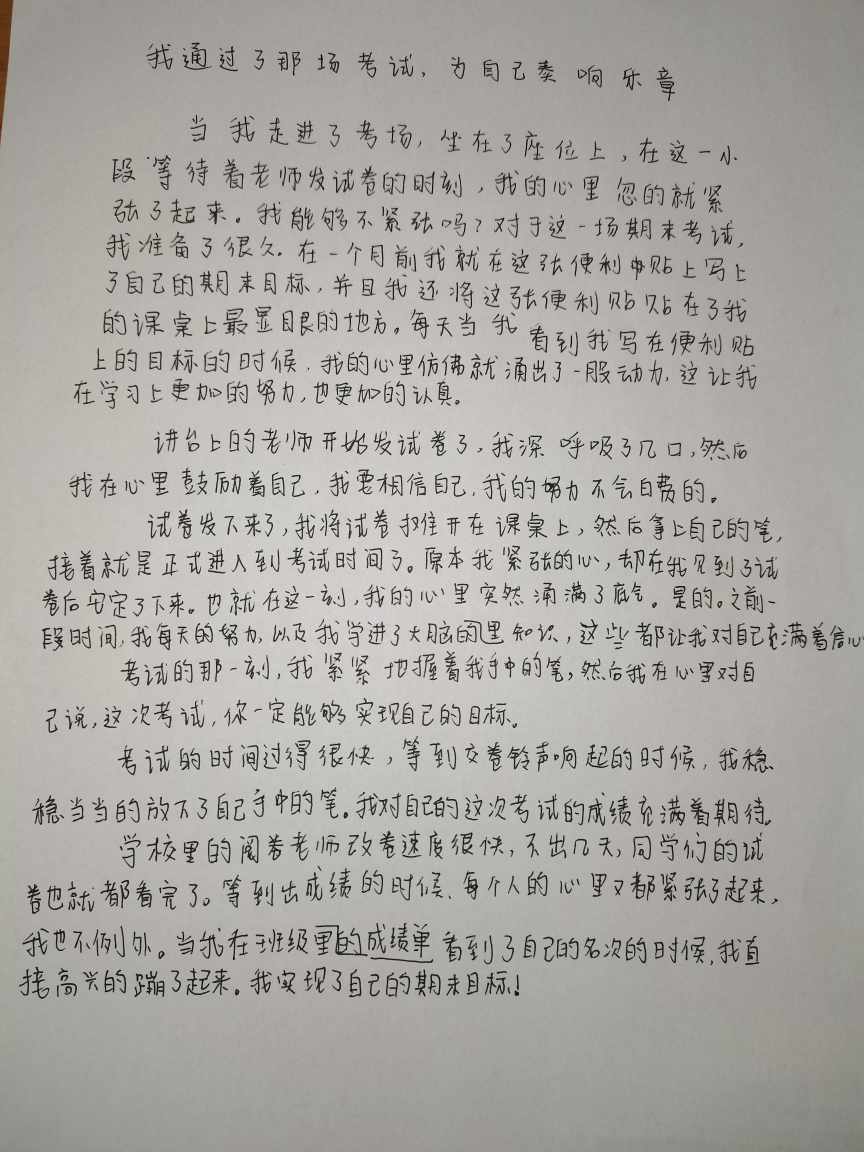 我通过了那场考试，为自己奏响乐章
当我走进了考场，坐在了座位上，在这一小
段等待着老师发试卷的时刻，我的心里忽的就紧
张了起来。我能够不紧张吗？对于这一场期末考试，
我准备了很久。在一个月前我就在这张便利贴上写上
了自己的期末目标，并且我还将这张便利贴贴在了我
的课桌上最显目眼的地方。每天当我看到我写在便利贴
上的目标的时候，我的心里仿佛就涌出了一股动力，这让我
在学习上更加的努力，也更加的认真。
讲台上的老师开始发试卷了，我深呼吸了几口，然后
我在心里鼓励着自己，我要相信自己，我的努力不会白费的。
试卷发下来了，我将试卷摊开在课桌上，然后拿上自己的笔，
接着就是正式进入到考试时间了。原本我紧张的心，却在我见到了试
卷后安定了下来。也就在这一刻，我的心里突然涌满了底气。是的。之前一
段时间，我每天的努力，以及我学进了大脑的里知识，这些都让我对自己充满着信心
考试的那一刻，我紧紧地握着我手中的笔，然后我在心里对自
己说，这次考试，你一定能够实现自己的目标。
考试的时间过得很快，等到交卷铃声响起的时候，我稳
稳当当的放下了自己手中的笔。我对自己的这次考试的成绩充满着期待。
学校里的阅卷老师改卷速度很快，不出几天，同学们的试
卷也就都看完了。等到出成绩的时候，每个人的心里又都紧张了起来，
我也不例外。当我在班级里的成绩单看到了自己的名次的时候，我直
接高兴的蹦了起来。我实现了自己的期末目标！